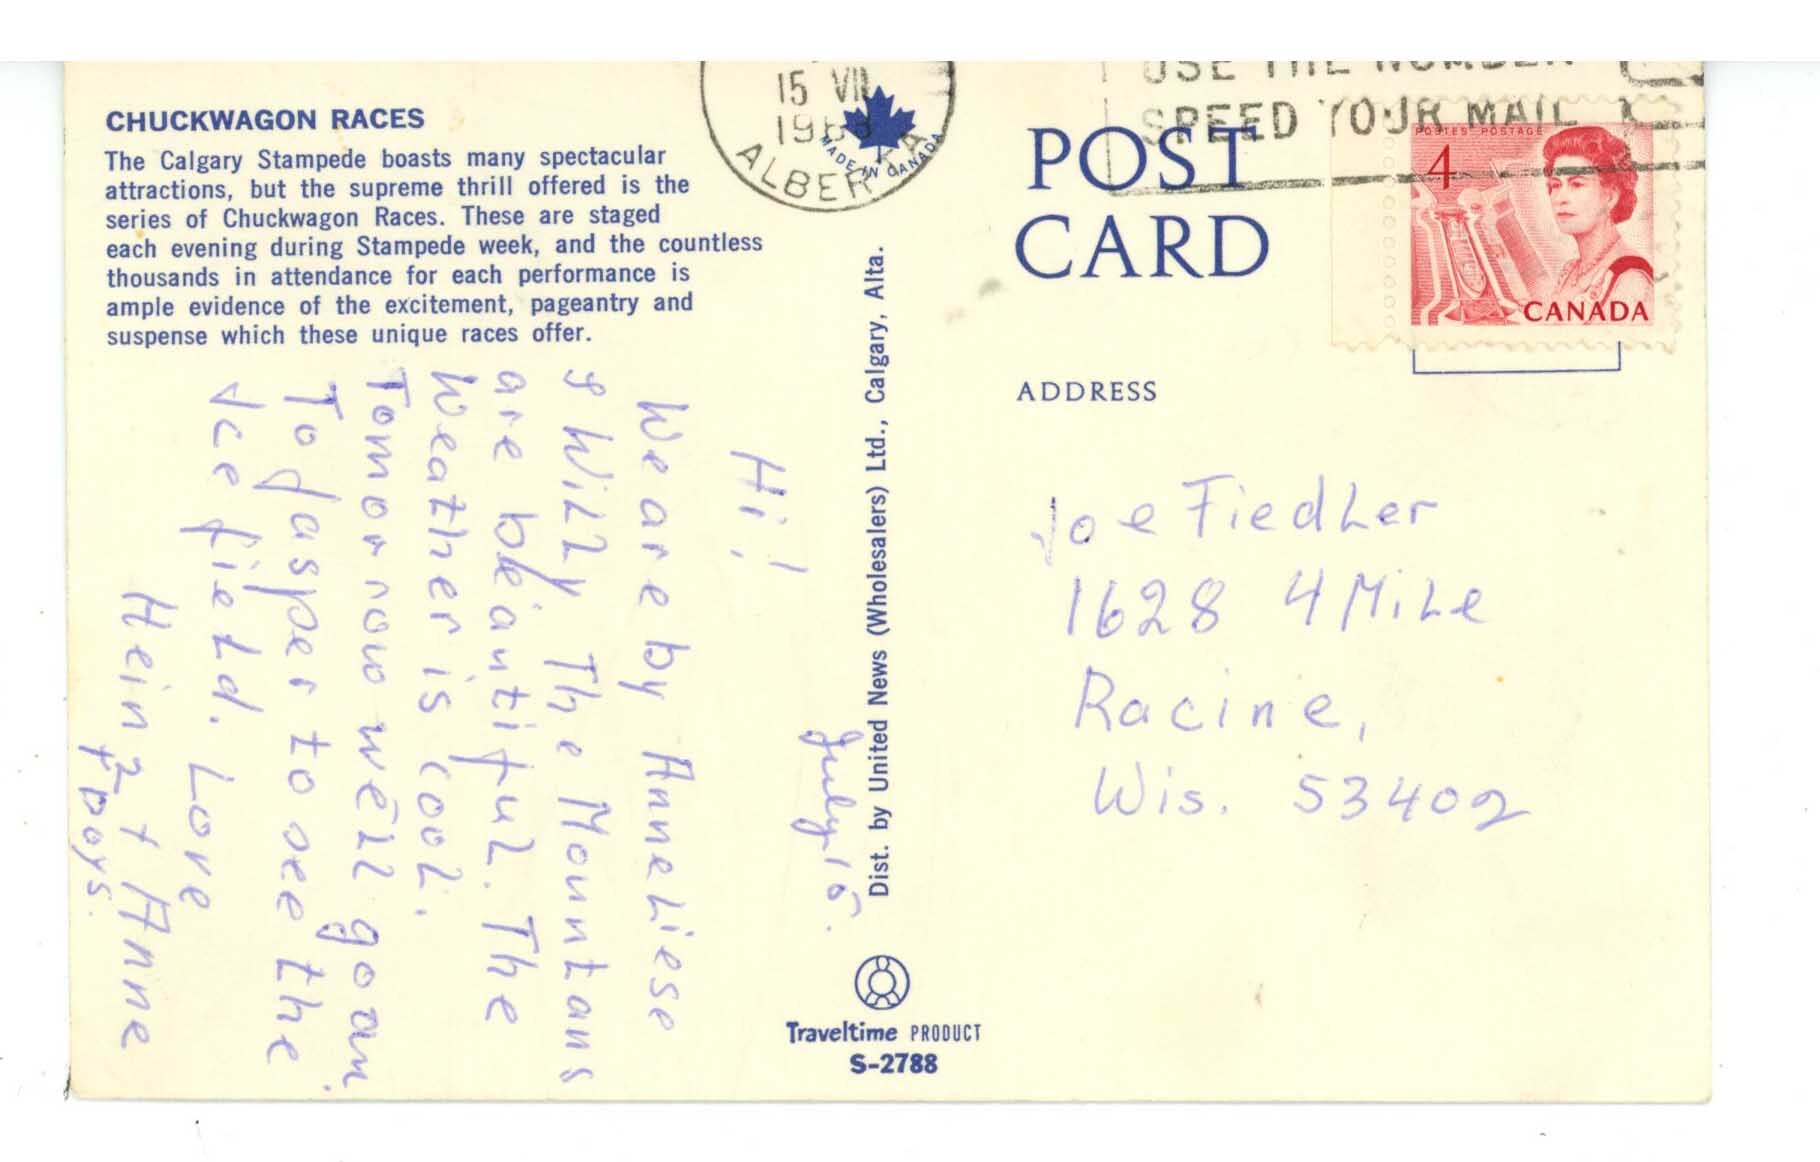 CHUCKWAGON RACES
The Calgary Stampede boasts many spectacular
attractions, but the supreme thrill offered is the
series of Chuckwagon Races. These are staged
each evening during Stampede week, and the countless
thousands in attendance for each performance is
ample evidence of the excitement, pageantry and
suspense which these unique races offer.
July 15.
Hi!
We are by AnneLiese
& Willy The Mountans
are beautiful. The
Weather is cool.
Tomorrow well goan
To Jasper to see the
Ice field.
Love
Heinz + Anne
+ Boys.
Dist. by United News (Wholesalers) Ltd., Calgary, Alta.
Traveltime PRODUCT
S-2788
15 VII
ALBERTA
MADE IN CANADA
USE THE NUMBER
SPEED YOUR MAIL
POST
CARD
POSTES POSTAGE
4
CANADA
ADDRESS
Joe Fiedler
1628 4 Mile
Racine,
Wis. 53402